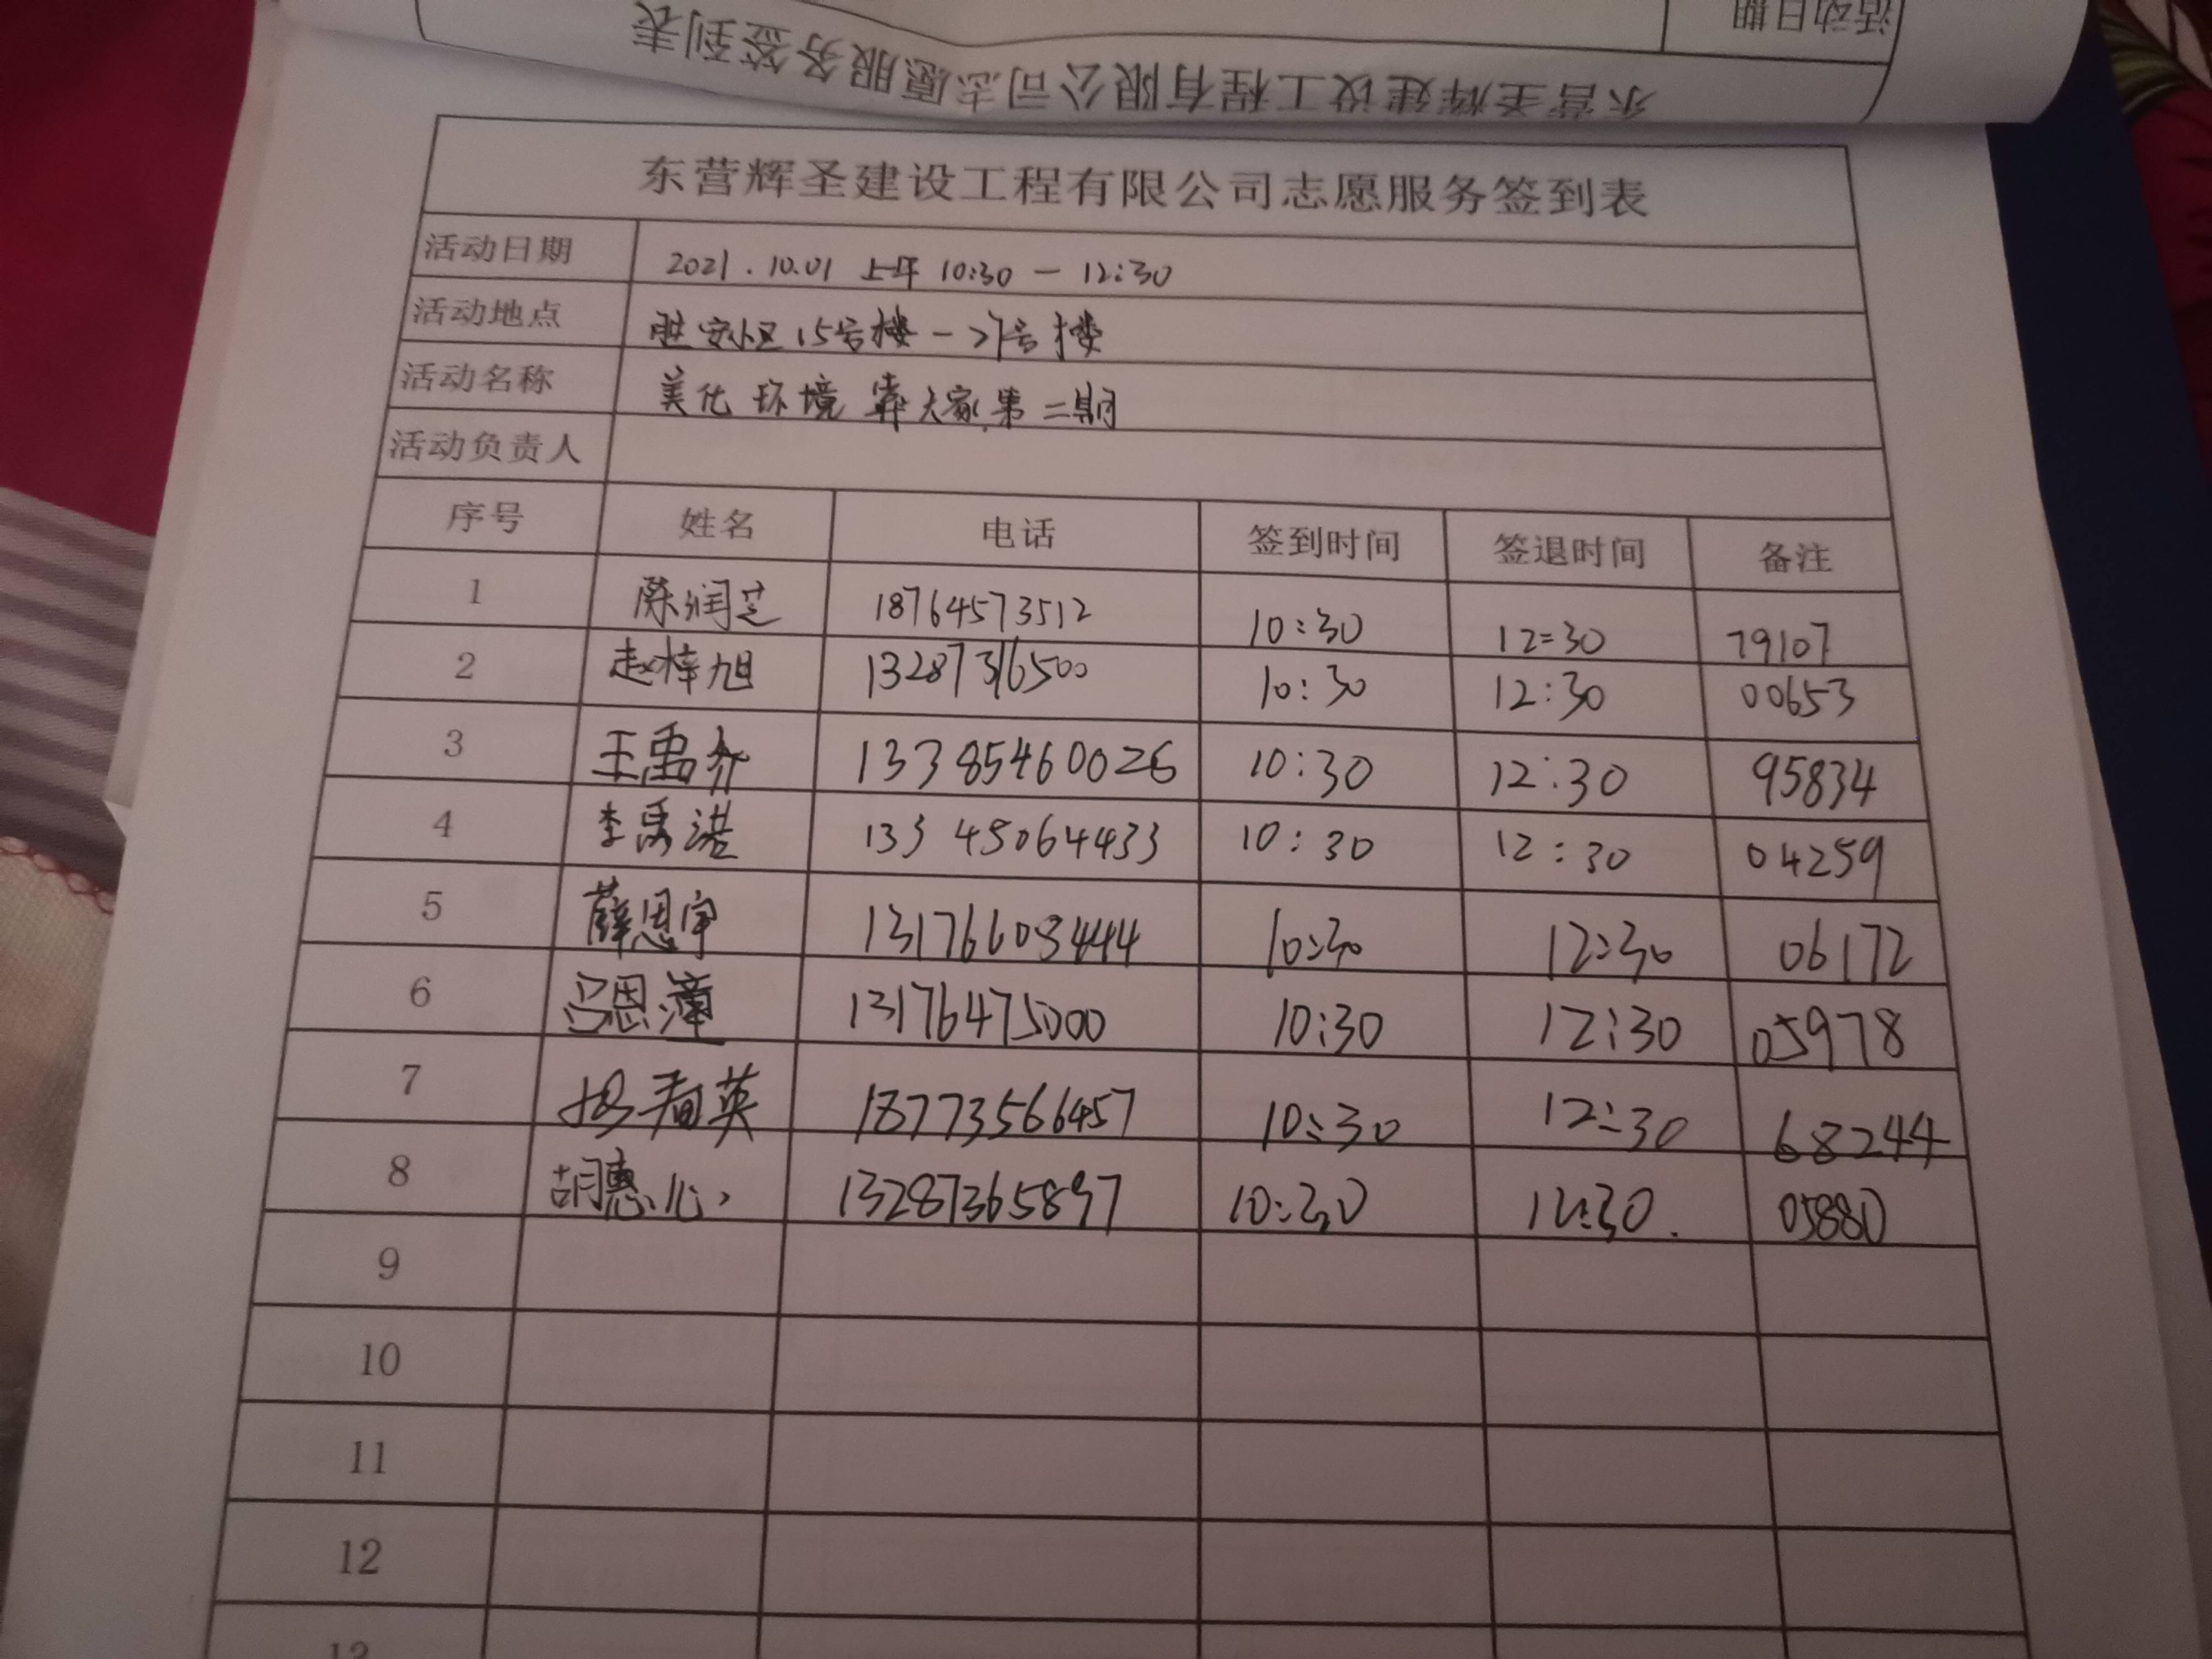 活动日期
东营圣辉建设工程有限公司志愿服务签到表
东营辉圣建设工程有限公司志愿服务签到表
活动日期 2021.10.01 上午 10:30 — 12:30
活动地点 胜安小区15号楼-21号楼
活动名称 美化环境靠大家第二期
活动负责人
序号 姓名 电话 签到时间 签退时间 备注
1 陈润芝 18764573512 10:30 12:30 79107
2 赵梓旭 13287316500 10:30 12:30 00653
3 王禹乔 13385460026 10:30 12:30 95834
4 李禹洪 13345064433 10:30 12:30 04259
5 薛思宇 13176608444 10:30 12:30 06172
6 吕恩潼 13176475000 10:30 12:30 05978
7 杨春英 18773566457 10:30 12:30 68244
8 胡惠心 13287365897 10:30 12:30 05880
9
10
11
12
13